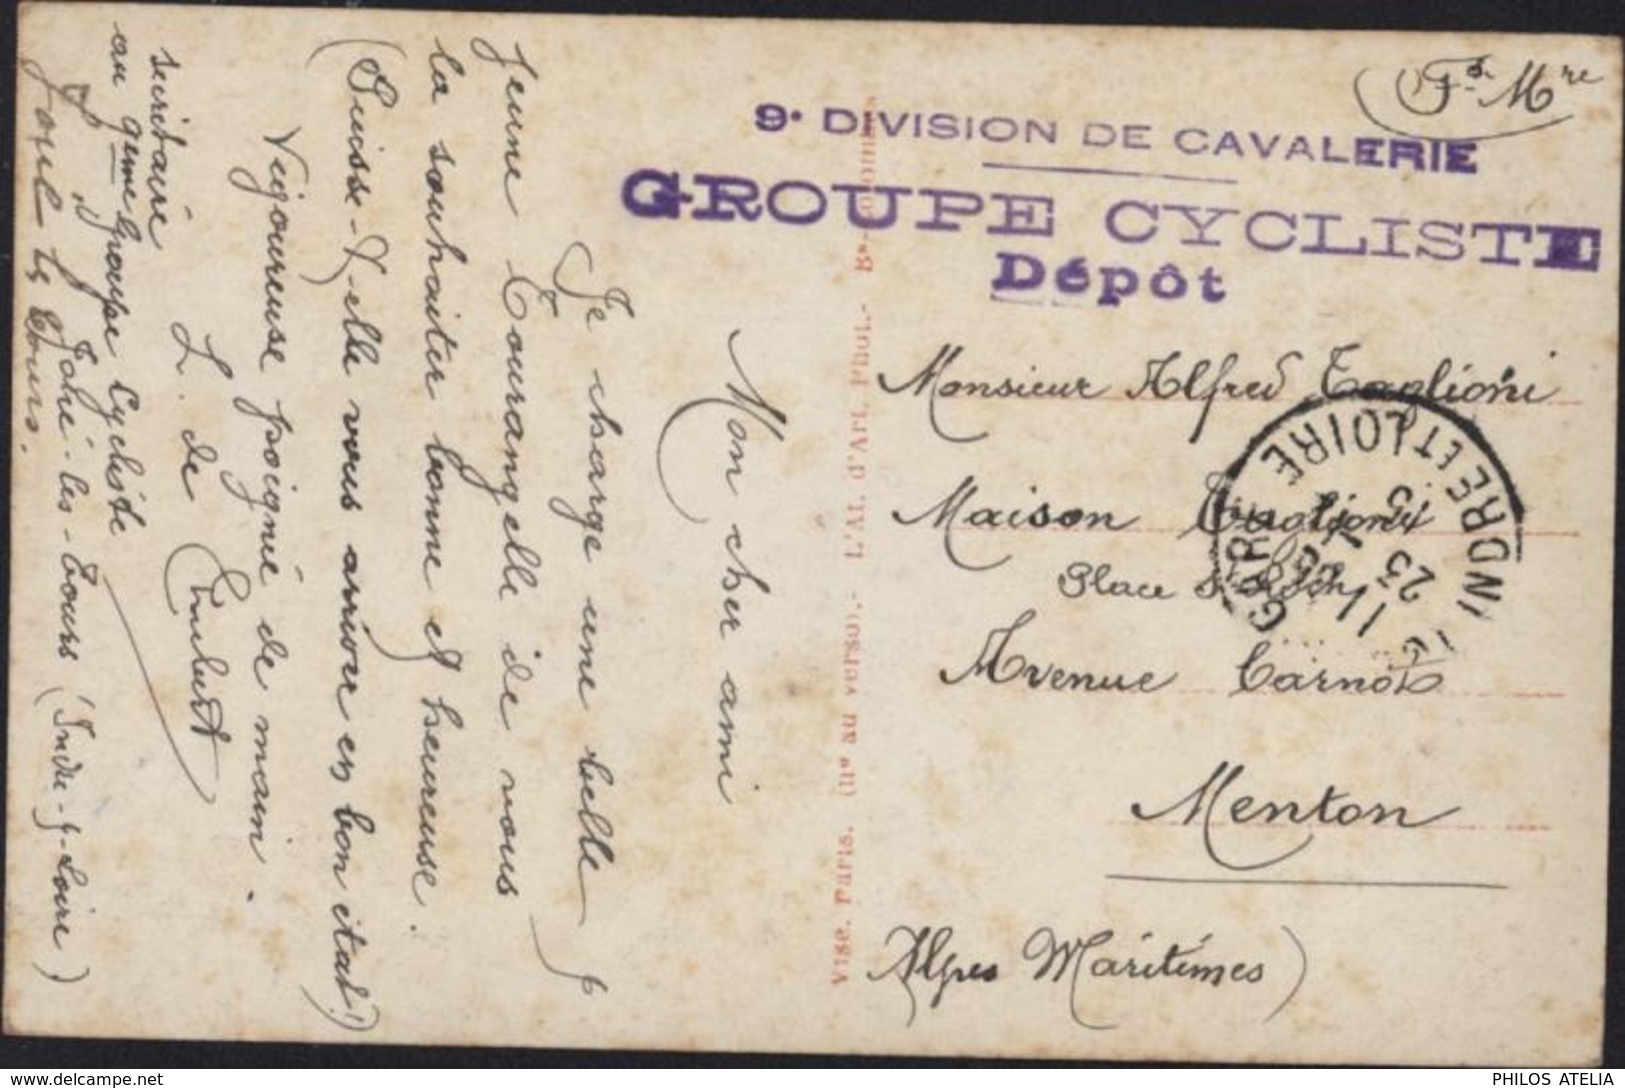 Fse Mre
9e DIVISION DE CAVALERIE
GROUPE CYCLISTE
Dépôt
Monsieur Alfred Taglioni
Maison Taglioni
Place St Roch
Avenue Carnot
Menton
Alpes Maritimes)
GARE
INDRE ET LOIRE
23
11
15
Visé. Paris. (No au verso).- L'Al. d'Art. Phot.-
Mon cher ami
Je charge une belle &
jeune Tourangelle de vous
la souhaiter bonne et heureuse.
(Puisse-t-elle vous arriver en bon état!)
Vigoureuse poignée de main.
L. de
secrétaire
au 9eme Groupe Cycliste
Joué-les-Tours (Indre-&-Loire)
Joué les Tours.
PHILOS ATELIA